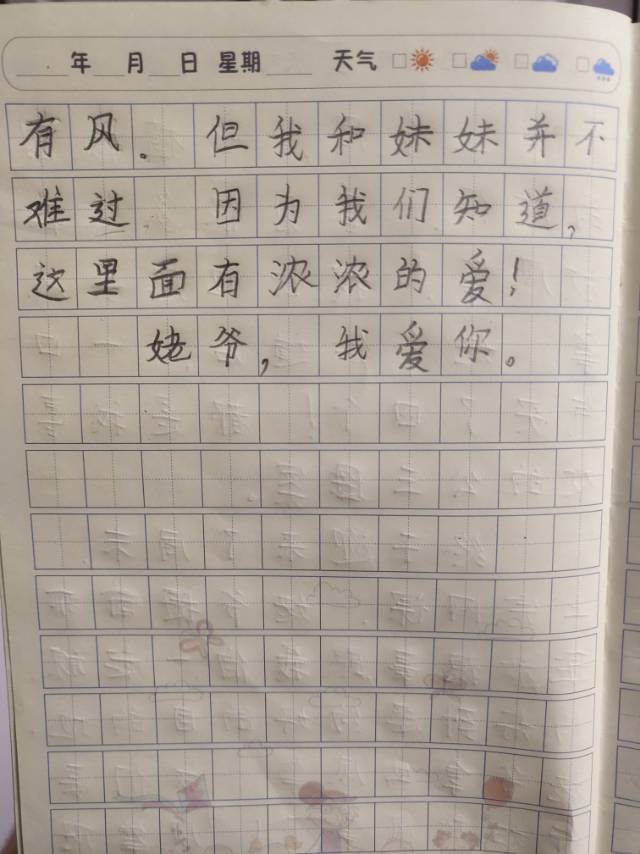 年 月 日 星期 天气
有风。但我和妹妹并不
难过 因为我们知道,
这里面有浓浓的爱!
姥爷,我爱你。